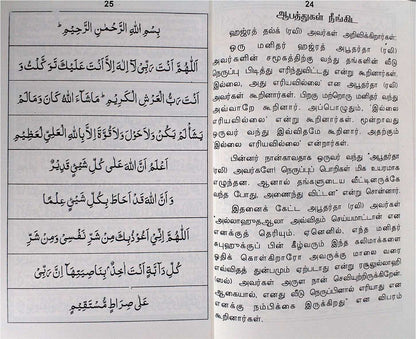 25
بِسْمِ اللّٰهِ الرَّحْمٰنِ الرَّحِيْمِ
اَللّٰهُمَّ اَنْتَ رَبِّىْ لَآ اِلٰهَ اِلَّا اَنْتَ عَلَيْكَ تَوَكَّلْتُ وَ
اَنْتَ رَبُّ الْعَرْشِ الْكَرِيْمِ مَاشَآءَ اللّٰهُ كَانَ وَمَالَمْ
يَشَأْ لَمْ يَكُنْ وَلَاحَوْلَ وَلَاقُوَّةَ اِلَّا بِاللّٰهِ الْعَلِىِّ الْعَظِيْمِ
اَعْلَمُ اَنَّ اللّٰهَ عَلٰى كُلِّ شَيْئٍ قَدِيْرٌ
وَ اَنَّ اللّٰهَ قَدْ اَحَاطَ بِكُلِّ شَيْئٍ عِلْمًا
اَللّٰهُمَّ اِنِّىْ اَعُوْذُبِكَ مِنْ شَرِّ نَفْسِىْ وَمِنْ شَرِّ
كُلِّ دَآبَّةٍ اَنْتَ اٰخِذٌ بِنَاصِيَتِهَا اِنَّ رَبِّىْ
عَلٰى صِرَاطٍ مُّسْتَقِيْمٍ
24
ஆபத்துகள் நீங்கிட
ஹஜ்ரத் தல்க் (ரலி) அவர்கள் அறிவிக்கிறார்கள்:
ஒரு மனிதர் ஹஜ்ரத் அபூதர்தா (ரலி)
அவர்களின் சமூகத்திற்கு வந்து தங்களின் வீடு
நெருப்பு பிடித்து எரிந்துவிட்டது என்று கூறினார்கள்.
இல்லை, அது எரியவில்லை என அபூதர்தா (ரலி)
அவர்கள் கூறினார்கள். பிறகு மற்றொரு மனிதர் வந்து
அவ்வாறே கூறினார். அப்பொழுதும், 'இல்லை
எரியவில்லை' என்று கூறினார்கள். மூன்றாவது
ஒருவர் வந்து இவ்விதமே கூறினார். அதற்கும்
'இல்லை எரியவில்லை' என்றார்கள்.
பின்னர் நான்காவதாக ஒருவர் வந்து "அபூதர்தா
(ரலி) அவர்களே! நெருப்புப் பொறிகள் மிக உயரமாக
எழுந்தன. ஆனால் தங்களுடைய வீட்டினருகே
வந்த போது, அணைந்து விட்டன" என்று சொன்னார்.
இதனைக் கேட்ட அபூதர்தா (ரலி) அவர்கள்
"அல்லாஹுதஆலா அவ்விதம் செய்யமாட்டான் என
எனக்குத் தெரியும். ஏனெனில், எந்த மனிதர்
சுபுஹுக்குப் பின் கீழ்வரும் இந்த கலிமாக்களை
ஓதிக் கொள்கிறாரோ அவருக்கு மாலை வரை
எவ்விதத் துன்பமும் ஏற்படாது என்று ரசூலுல்லாஹி
(ஸல்) அவர்கள் அருள நான் செவியுற்றிருக்கிறேன்.
ஆகையால், எனது வீடு நெருப்பினால் எரியாது என
எனக்கு நம்பிக்கை இருக்கிறது" என விபரம்
கூறினார்கள்.